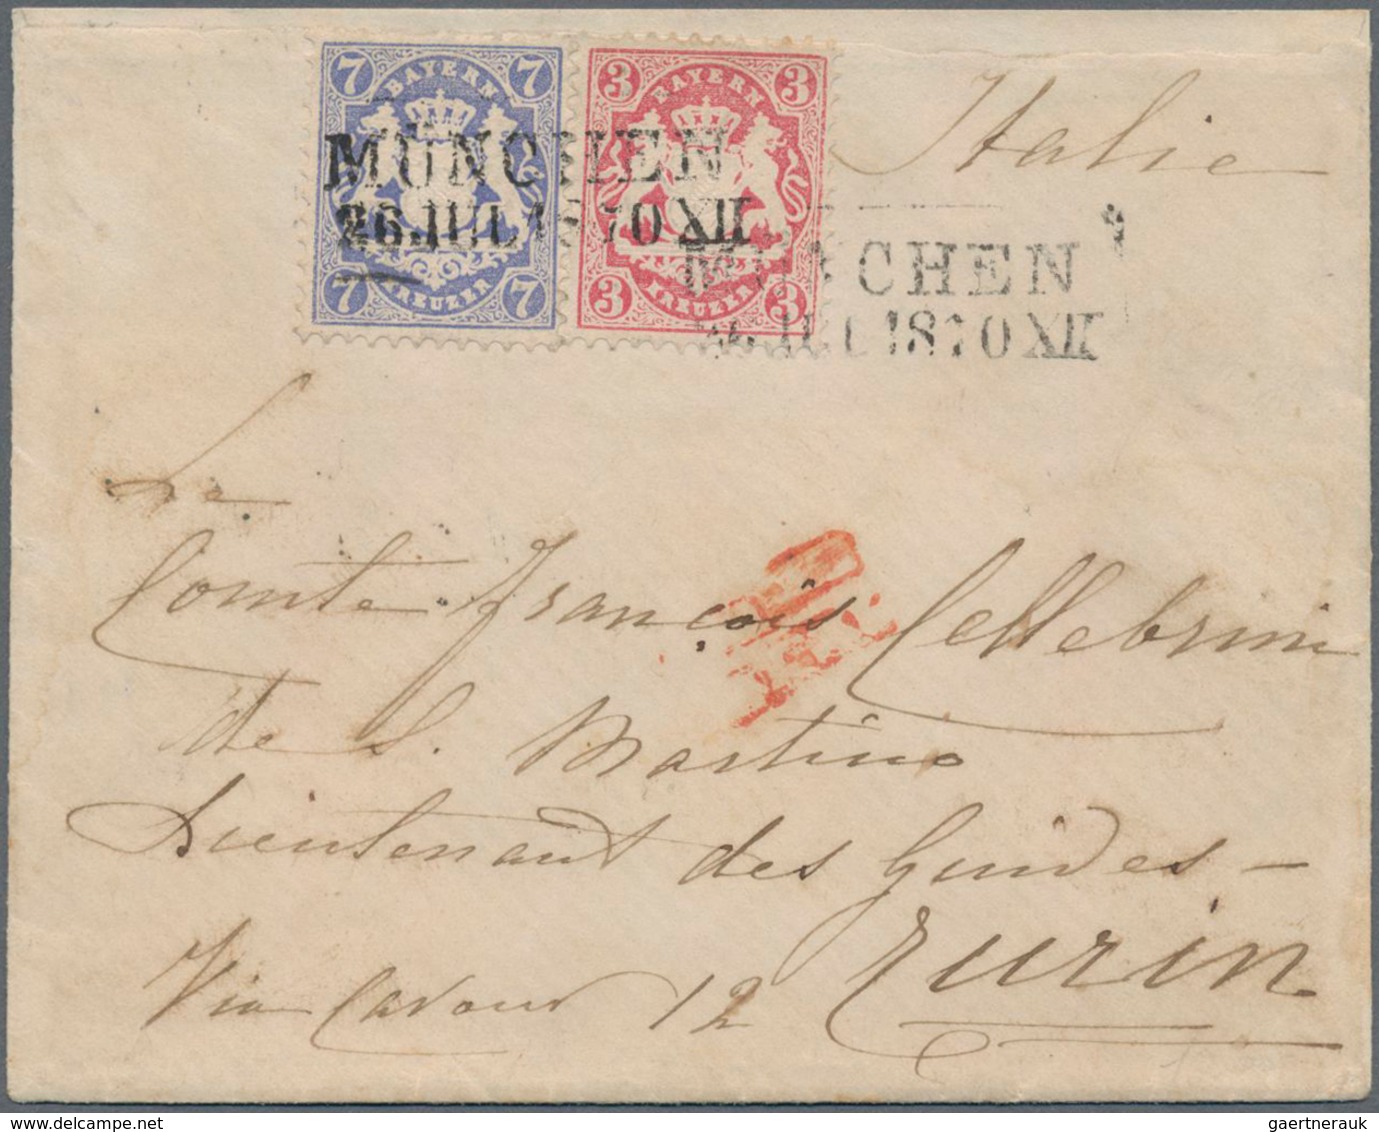 7 BAYERN 7
7 KREUZER 7
3 BAYERN 3
3 KREUZER 3
MÜNCHEN
26.JUL.1870 XII
MÜNCHEN
26.JUL.1870 XII
Italie
Comte François Cellebrini
de S. Martino
Lieutenant des Guides –
Via Cavour 12
Turin
gaertnerauk / www.delcampe.net